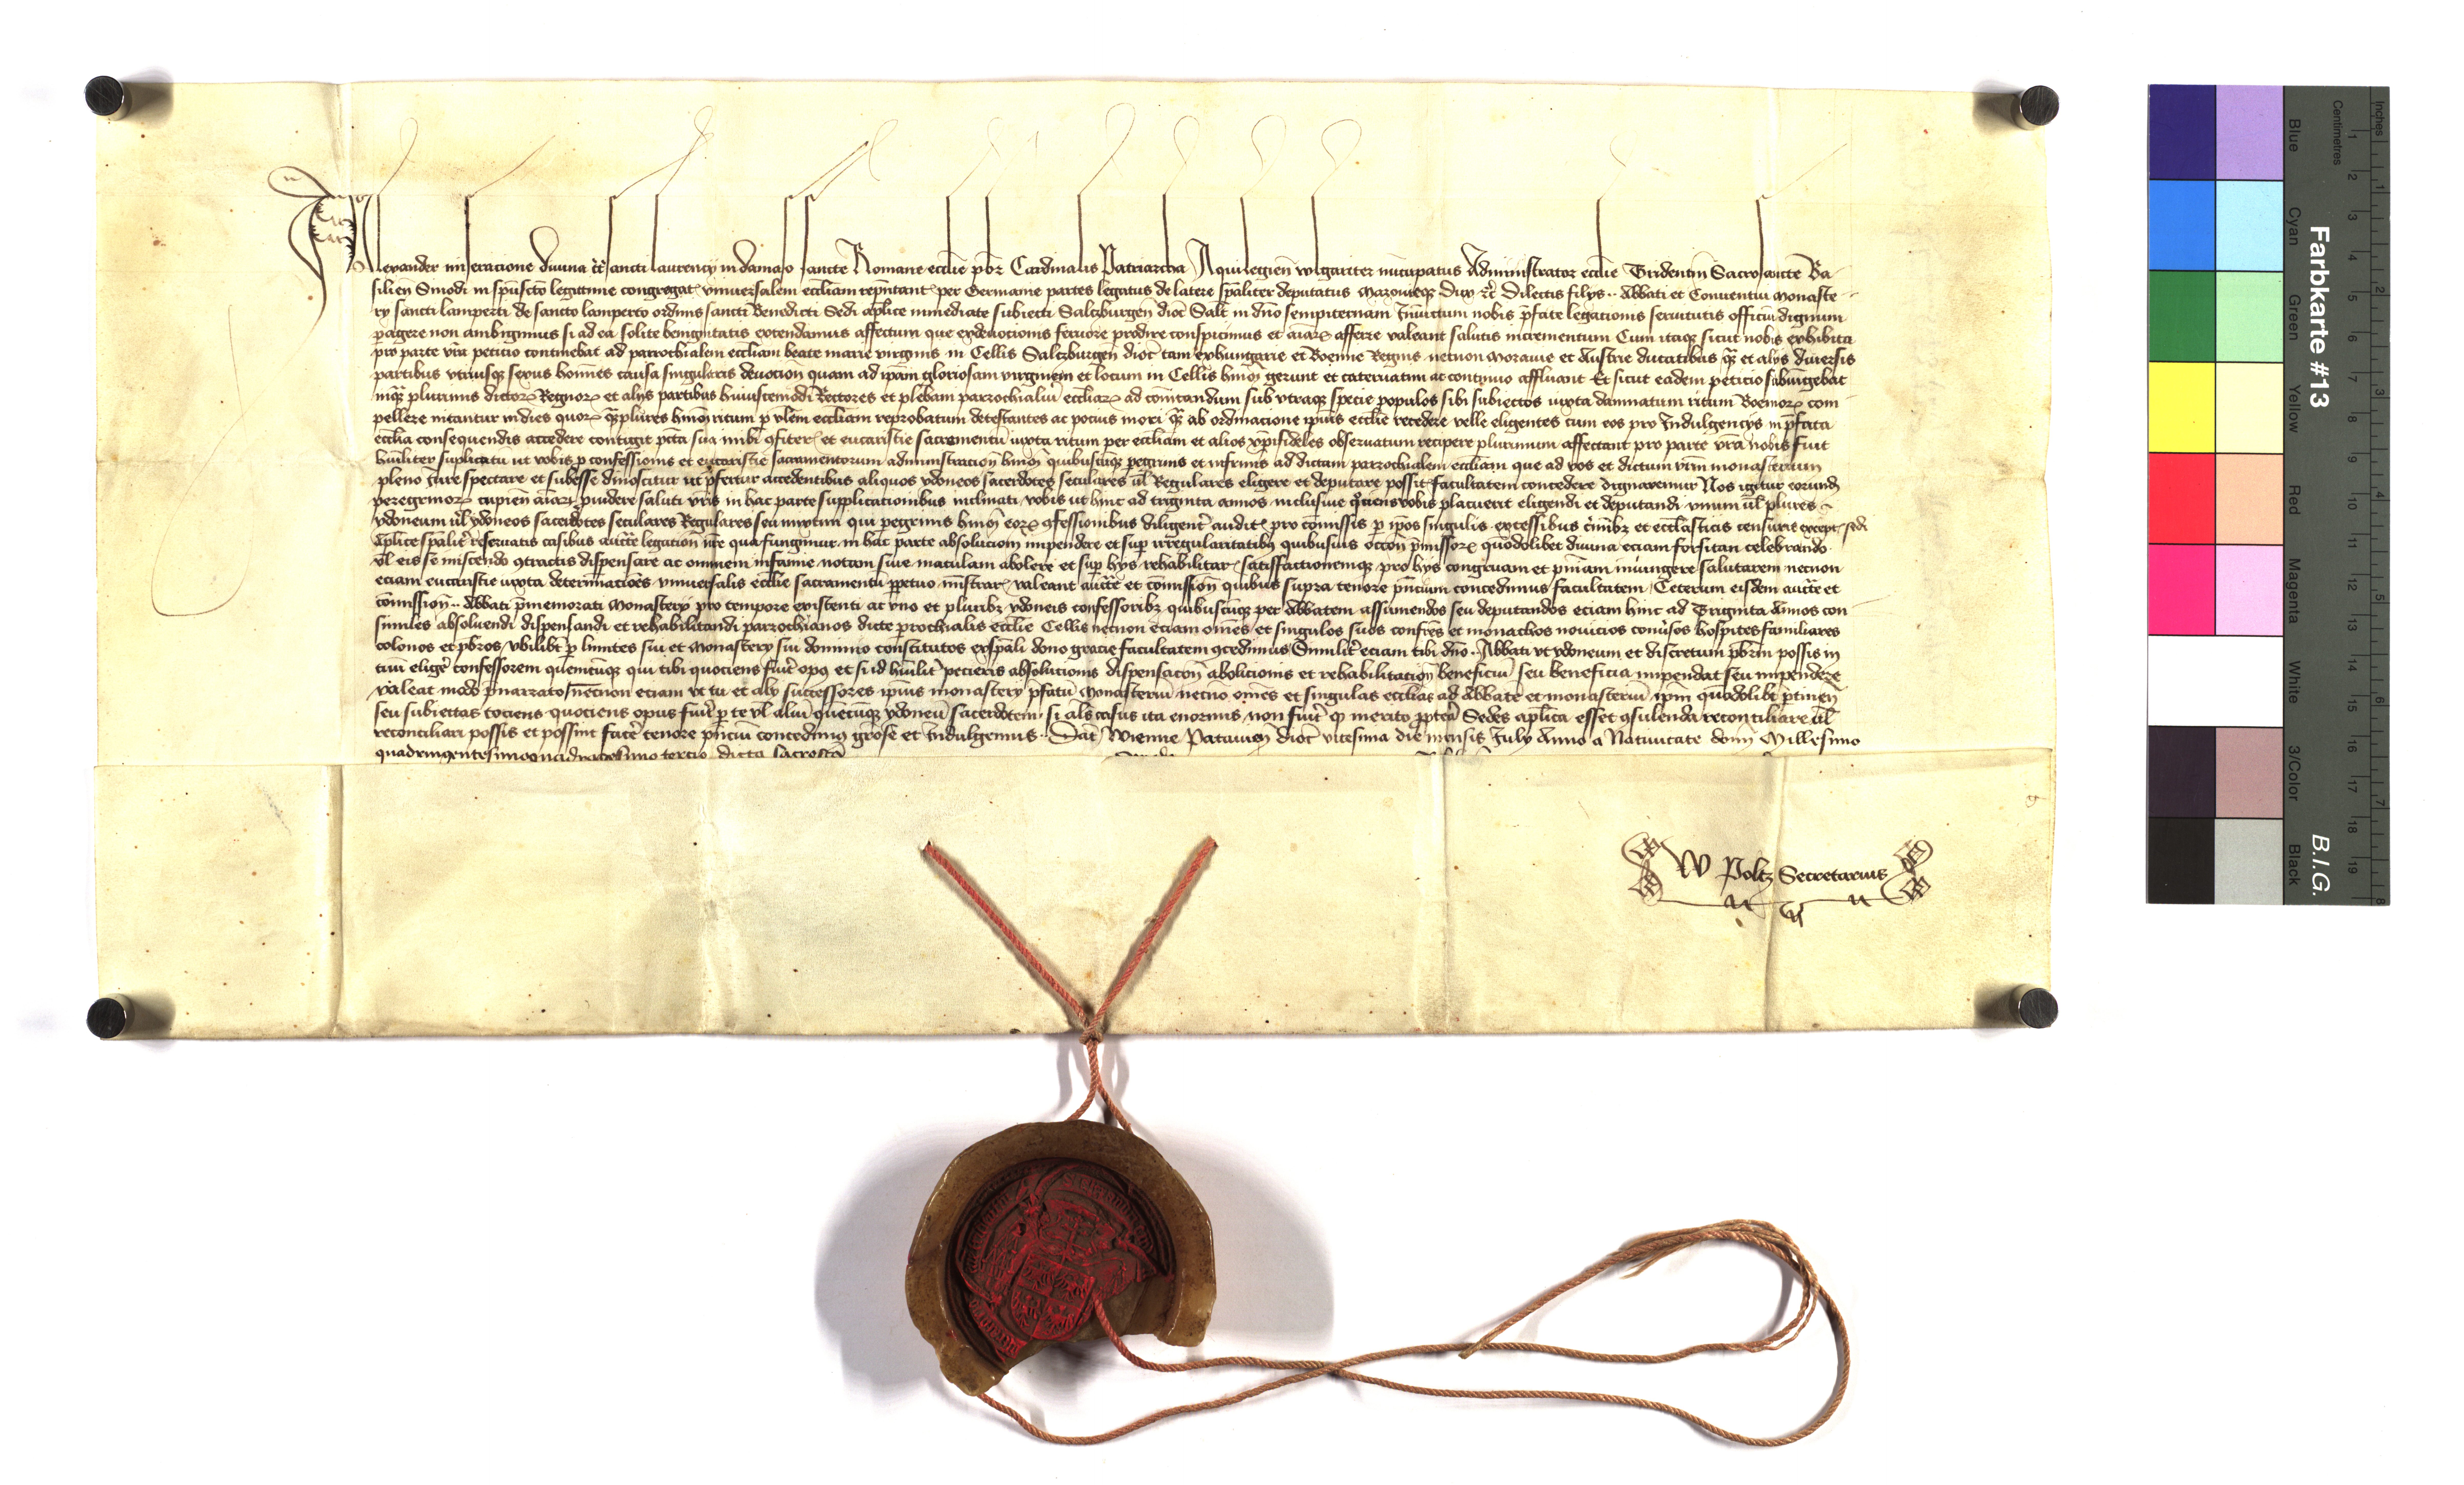 Alexander miseracione divina tt̄ sancti laurencii in damaso sancte Romane eccl̄ie pb̄r Cardinalis Patriarcha Aquilegien̄ vulgariter nūcupatus Administrator eccl̄ie Tridentin̄ Sacrosancte Ba-
silien̄ Sinodi in sp̄uscto legittime congregat̄ vniuersalem eccl̄iam rep̄ntant̄ per Germanie partes legatus de latere sp̄aliter deputatus Mazouieqz Dux ꝛc̄ Dilectis filijs .. Abbati et Conuentui Monaste-
rij sancti lamperti de sancto lamperto ordinis sancti Benedicti Sedi ap̄lice inmediate subiecti Salczburgen̄ dioc̄ Salt̄ in dn̄o sempiternam Iniunctum nobis p̄fate legacionis seruitutis officiū dignum
pagere non ambigimus si ad ea solite benignitatis extendamus affectum que ex deuocionis feruore prodire conspicimus et aīaꝝ afferre valeant salutis incrementum Cum itaqz sicut nobis exhibita
pro parte vr̄a peticio continebat ad parrochialem eccl̄iam beate marie virginis in Cellis Salczburgen̄ dioc̄ tam ex hungarie et Boemie Regnis necnon Morauie et Austrie ducatibus qz̄ et alijs diuersis
partibus vtriusqz sexus hoīnes causa singularis deuocion̄ quam ad ip̄am gloriosam virginem et locum in Cellis hm̄oi gerunt et cateruatim ac continuo affluant Et sicut eadem peticio subiūgebat
inqz̄ plurimis dictoꝝ Regnoꝝ et alijs partibus huiuscemodi Rectores et plebani parrochialiū eccl̄iaꝝ ad com̄icandum sub vtraqz specie populos sibi subiectos iuxta damnatum ritum Boemoꝝ com-
pellere nitantur indies quoꝝ qz̄plures hm̄oi ritum p vl̄em eccl̄iam reprobatum detestantes ac pocius mori qz̄ ab ordinacione ip̄ius eccl̄ie recedere velle eligentes cum eos pro Indulgencijs in p̄fata
eccl̄ia consequendis accedere contingit pct̄a sua inibi ꝯfiteri et eucaristie sacramentū iuxta ritum per eccl̄iam et alios xp̄ifideles obseruatum recipere plurimum affectant pro parte vr̄a nobis fuit
humiliter suplicatū ut vobis p confessionis et eucaristie sacramentorum administracion̄ hm̄oi quibuscūqz pegrinis et infirmis ad dictam parrochialem eccl̄iam que ad vos et dictum vr̄m monasterium
pleno Iure spectare et subesse dinoscitur ut p̄fertur accedentibus aliquos ydoneos sacerdotes seculares ul̄ Regulares eligere et deputare possit facultatem concedere dignaremur Nos igitur eorund̄
peregrinoꝝ cupien̄ aīaꝝ puidere saluti vr̄is in hac parte supplicationibus inclinati vobis ut hinc ad triginta annos inclusiue qociens vobis placuerit eligendi et deputandi vnum ul̄ plures
ydoneum ul̄ ydoneos sacerdotes seculares Regulares seu mixtim qui pegrinis hm̄oi eoꝝ ꝯfessionibus diligent̄ audit̄ pro com̄issis p ip̄os singulis excessibus criminibz et eccl̄asticis censuris except̄ sedi
ap̄lice sp̄alit̄ reseruatis casibus auctt̄e legation̄ nr̄e qua fungimur in hac parte absolucion̄ impendere et sup irregularitatibz quibusuis occōn p̄missoꝝ quodolibet diuina eciam forsitan celebrando
ul̄ eis se miscendo ꝯtractis dispensare ac omnem infamie notam siue maculam abolere et sup hijs rehabilitar̄ satisfactionemqz pro hijs congruam et pn̄iam iniungere salutarem necnon
eciam eucaristie iuxta determinacōes vniuersalis eccl̄ie sacramentū ppetuo ministrar̄ valeant auctt̄e et com̄ission̄ quibus supra tenore pn̄cium concedimus facultatem Ceterum eisdem auctt̄e et
com̄ission̄ .. Abbati p̄memorati Monasterij pro tempore existenti ac vno et pluribz ydoneis confessoribz quibuscūqz per Abbatem assumendos seu deputandos eciam hinc ad Triginta Annos con
similes absoluendi dispensandi et rehabilitandi parrochianos dicte prochialis eccl̄ie Cellis necnon eciam om̄es et singulos suos confr̄es et monachos nouicios conūsos hospites familiares
colonos et pb̄ros vbilibt̄ p limites sui et Monasterij sui dominio constitutos ex sp̄ali dono gracie facultatem ꝯcedimus Similit̄ eciam tibi dn̄o .. Abbati vt ydoneum et discretum pb̄rm possis in
tuū eliger̄ confessorem quemcūqz qui tibi quociens fuīt opꝰ et si id hūilit̄ pecieris absolucionis dispensacōn̄ abolicionis et rehabilitacion̄ beneficiū seu beneficia impendat seu impendere
valeat modo p̄narrato necnon eciam vt tu et alij successores ip̄ius monasterij p̄fatū Monasteriū necnō om̄es et singulas eccl̄ias ad Abbatē et monasteriū ip̄m quodolibt̄ ptinen̄
seu subiectas tociens quociens opus fuīt p te vl̄ aliū quecūqz ydoneū sacerdotem si al̄s casus ita enormis non fuīt qꝫ merito ppterea Sedes ap̄lica esset ꝯsulenda reconciliare ul̄
reconciliari possis et possint facer̄ tenore pn̄ciū concedimꝰ grōse et Indulgemus .. Dat̄ Wienne Patauien̄ dioc̄ vicesima die mensis Iulij Anno a Natiuitate domī Millesimo
quadringentesimoquadragesimo tercio dicta sacrosctā
W Poltz Secretarius
Farbkarte #13
B.I.G.
Inches
Centimetres
Blue Cyan Green Yellow Red Magenta White 3/Color Black
1 2 3 4 5 6 7 8 9 10 11 12 13 14 15 16 17 18 19
1 2 3 4 5 6 7 8